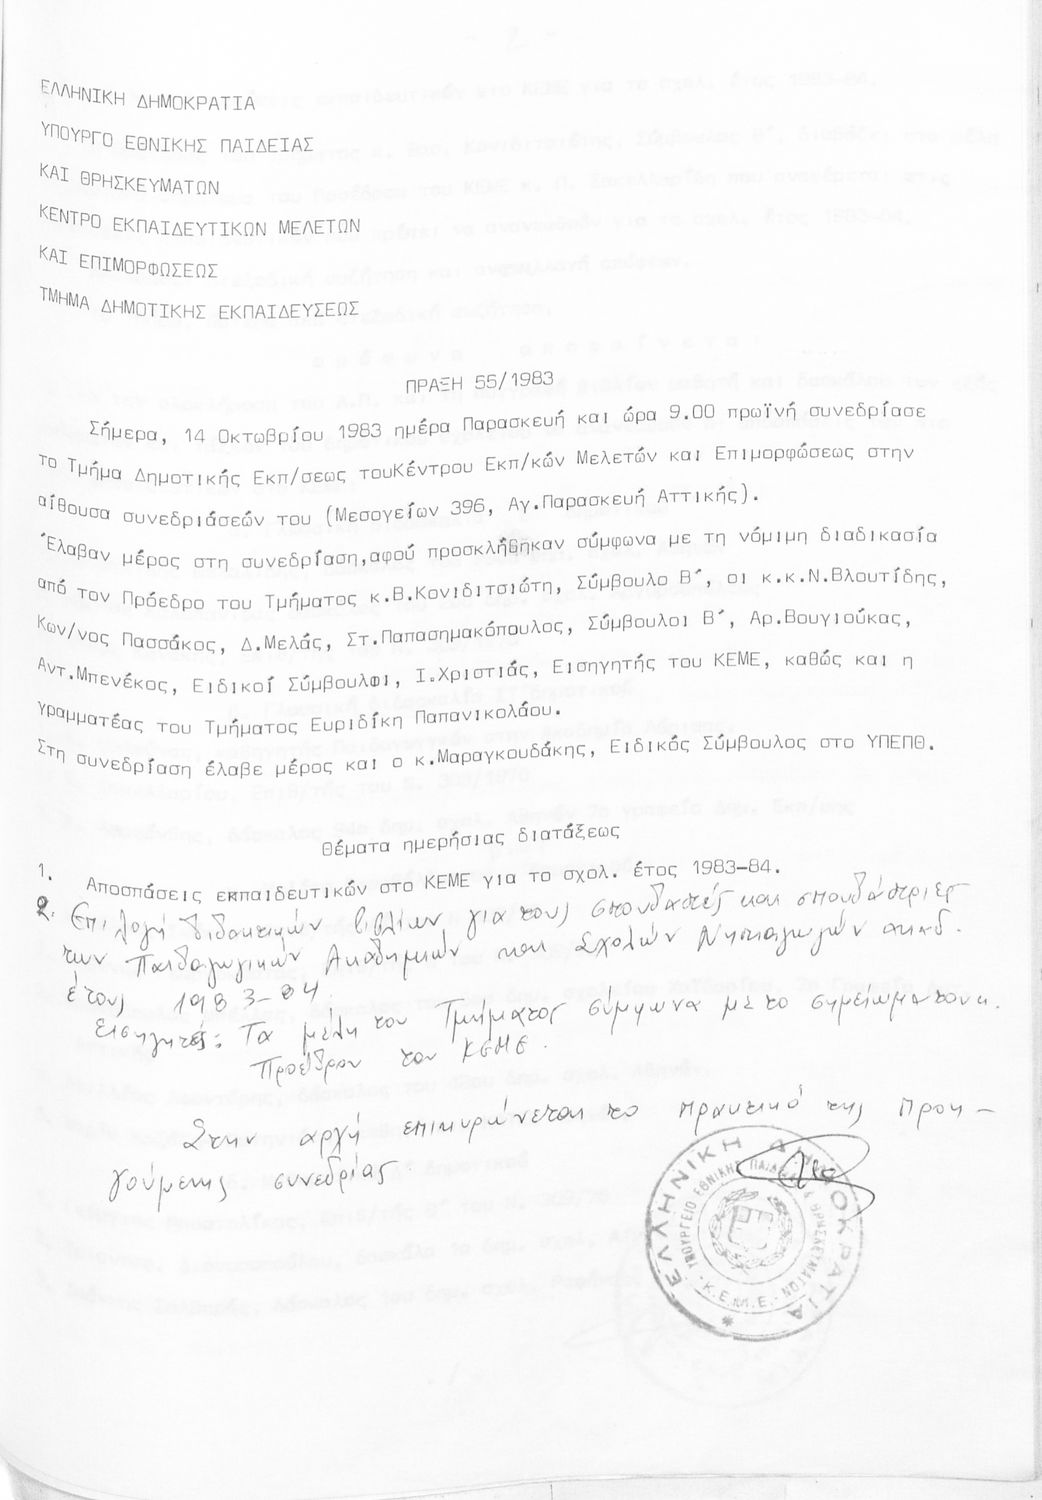 ΕΛΛΗΝΙΚΗ ΔΗΜΟΚΡΑΤΙΑ
ΥΠΟΥΡΓΟ ΕΘΝΙΚΗΣ ΠΑΙΔΕΙΑΣ
ΚΑΙ ΘΡΗΣΚΕΥΜΑΤΩΝ
ΚΕΝΤΡΟ ΕΚΠΑΙΔΕΥΤΙΚΩΝ ΜΕΛΕΤΩΝ
ΚΑΙ ΕΠΙΜΟΡΦΩΣΕΩΣ
ΤΜΗΜΑ ΔΗΜΟΤΙΚΗΣ ΕΚΠΑΙΔΕΥΣΕΩΣ
ΠΡΑΞΗ 55/1983
Σήμερα, 14 Οκτωβρίου 1983 ημέρα Παρασκευή και ώρα 9.00 πρωϊνή συνεδρίασε
το Τμήμα Δημοτικής Εκπ/σεως τουΚέντρου Εκπ/κών Μελετών και Επιμορφώσεως στην
αίθουσα συνεδριάσεών του (Μεσογείων 396, Αγ.Παρασκευή Αττικής).
Έλαβαν μέρος στη συνεδρίαση,αφού προσκλήθηκαν σύμφωνα με τη νόμιμη διαδικασία
από τον Πρόεδρο του Τμήματος κ.Β.Κονιδιτσιώτη, Σύμβουλο Β΄, οι κ.κ.Ν.Βλουτίδης,
Κων/νος Πασσάκος, Δ.Μελάς, Στ.Παπασημακόπουλος, Σύμβουλοι Β΄, Αρ.Βουγιούκας,
Αντ.Μπενέκος, Ειδικοί Σύμβουλοι, Ι.Χριστιάς, Εισηγητής του ΚΕΜΕ, καθώς και η
γραμματέας του Τμήματος Ευριδίκη Παπανικολάου.
Στη συνεδρίαση έλαβε μέρος και ο κ.Μαραγκουδάκης, Ειδικός Σύμβουλος στο ΥΠΕΠΘ.
Θέματα ημερήσιας διατάξεως
1. Αποσπάσεις εκπαιδευτικών στο ΚΕΜΕ για το σχολ. έτος 1983-84.
2. Επιλογή διδακτικών βιβλίων για τους σπουδαστές και σπουδάστριες
των Παιδαγωγικών Ακαδημιών και Σχολών Νηπιαγωγών ακαδ.
έτους 1983-84
Εισηγητές: Τα μέλη του Τμήματος σύμφωνα με το σημείωμα του κ.
Προέδρου του ΚΕΜΕ.
Στην αρχή επικυρώνεται το πρακτικό της προη-
γούμενης συνεδρίας.
ΕΛΛΗΝΙΚΗ ΔΗΜΟΚΡΑΤΙΑ
ΥΠΟΥΡΓΕΙΟ ΕΘΝΙΚΗΣ ΠΑΙΔΕΙΑΣ & ΘΡΗΣΚΕΥΜΑΤΩΝ
Κ.Ε.Μ.Ε.